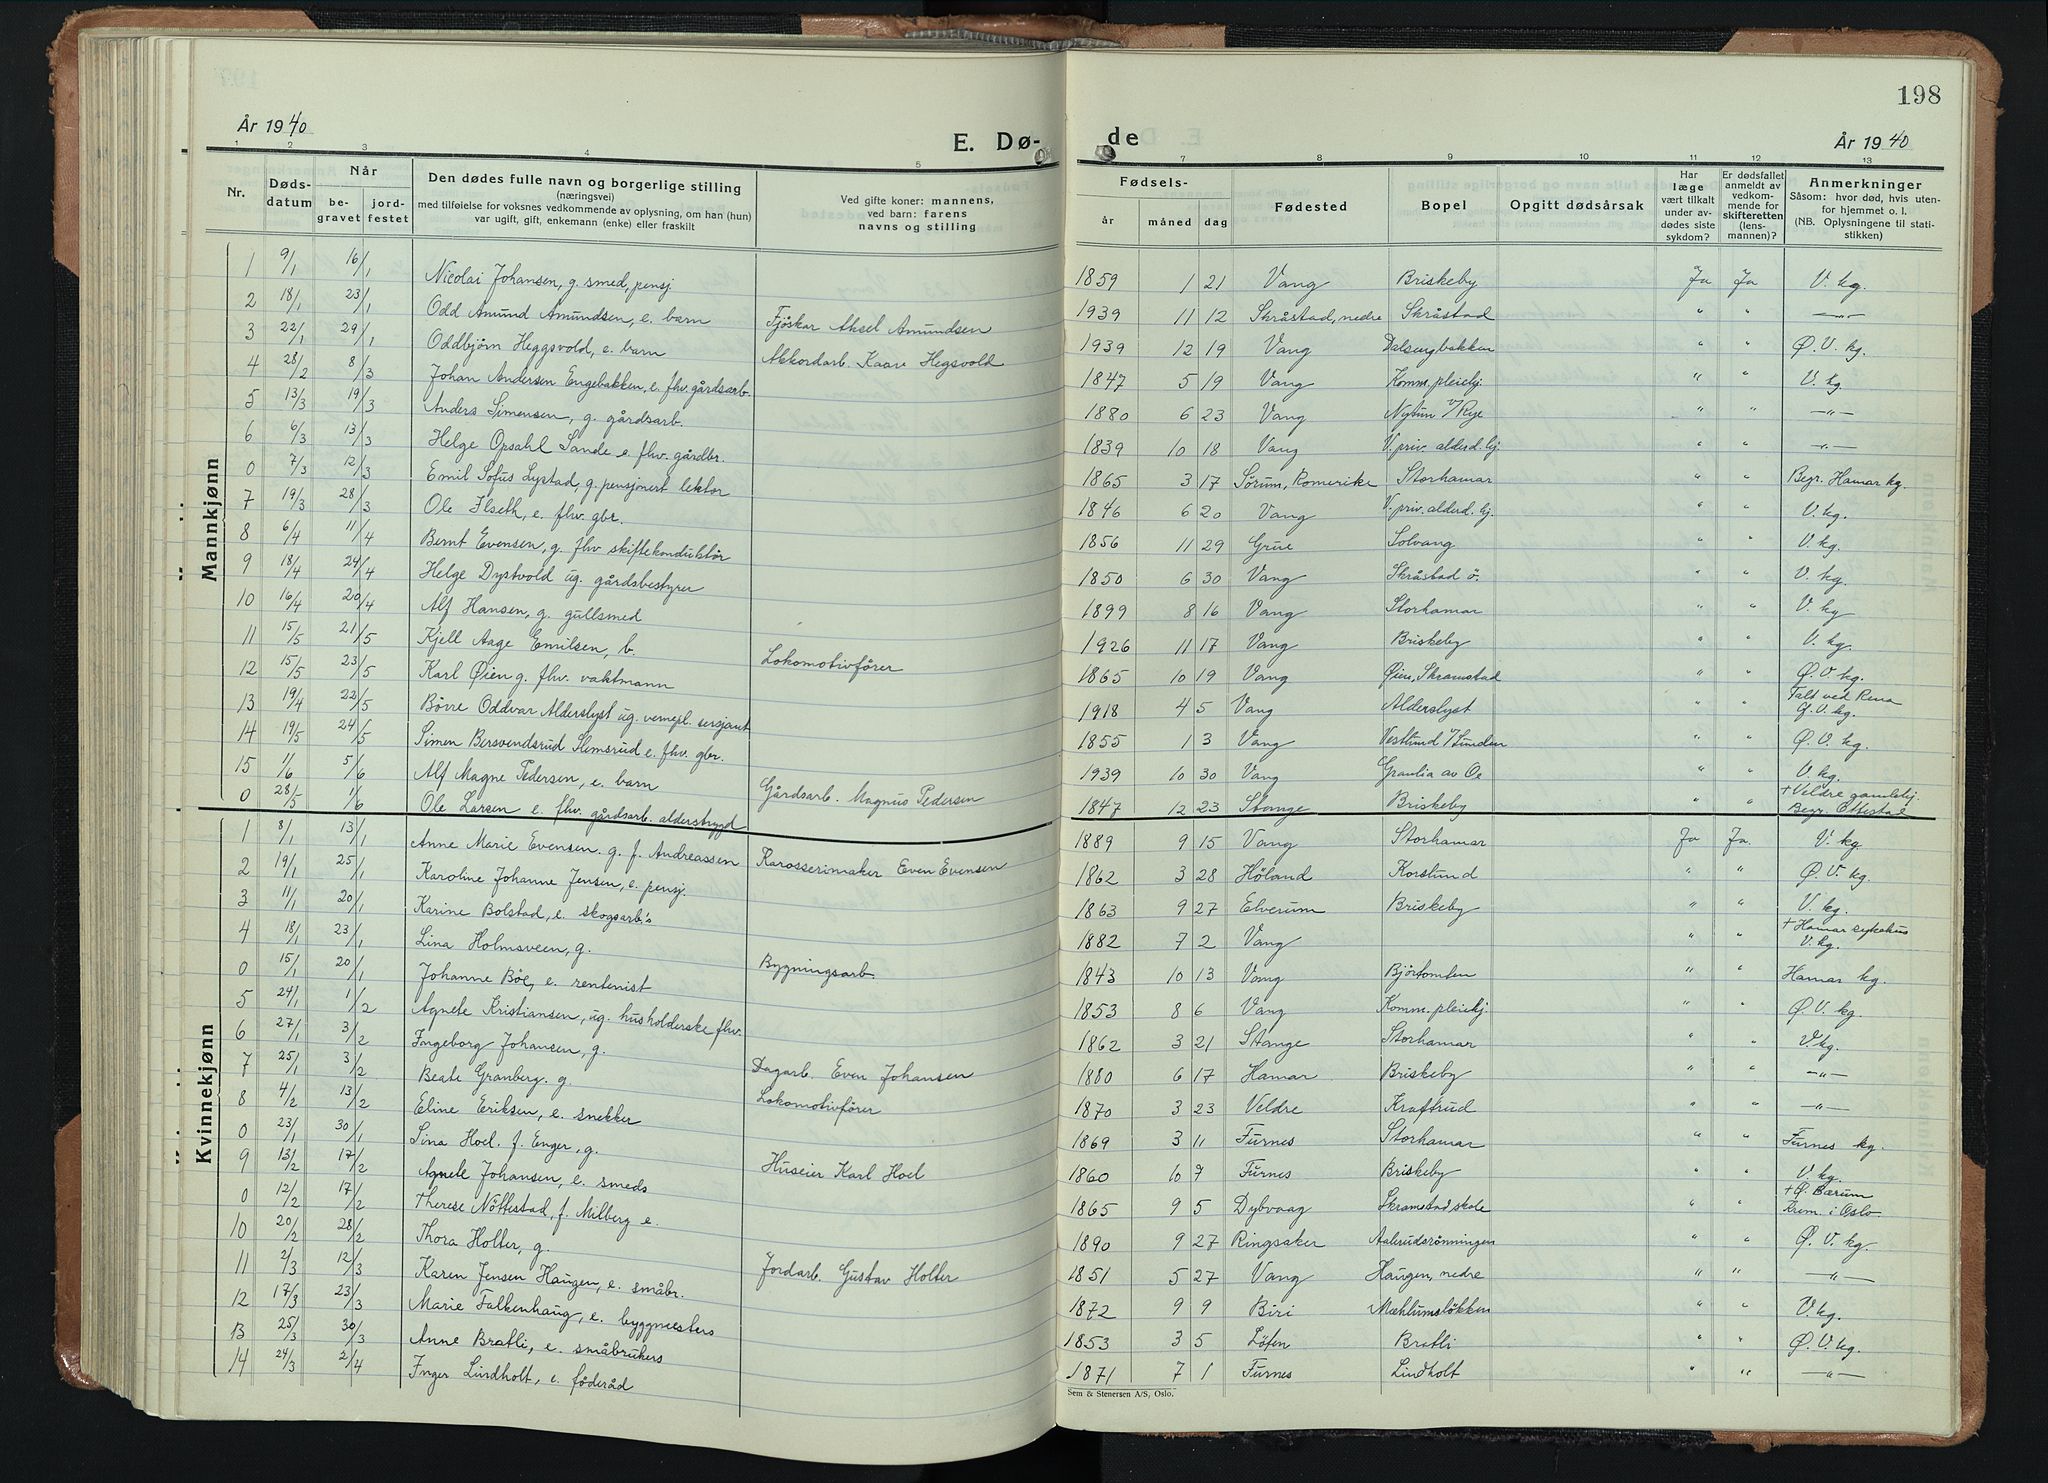 198
År 1940
E. Dø-
de
År 1940
1 2 3 4 5 7 8 9 10 11 12 13
Nr.
Døds-
datum
Når
be-
gravet
jord-
festet
Den dødes fulle navn og borgerlige stilling
(næringsvei)
med tilføielse for voksnes vedkommende av oplysning, om han (hun)
var ugift, gift, enkemann (enke) eller fraskilt
Ved gifte koner: mannens,
ved barn: farens
navns og stilling
Fødsels-
år
måned
dag
Fødested
Bopel
Opgitt dødsårsak
Har
læge
vært tilkalt
under av-
dødes siste
sykdom?
Er dødsfallet
anmeldt av
vedkom-
mende for
skifteretten
(lens-
mannen)?
Anmerkninger
Såsom: hvor død, hvis uten-
for hjemmet o. l.
(NB. Oplysningene til stati-
stikken)
Mannkjønn
1 9/1 16/1 Nicolai Johansen, g. smed, pensj 1859 1 21 Vang Briskeby Ja Ja V. kg.
2 18/1 23/1 Odd Amund Amundsen, e. barn Fjøskar Aksel Amundsen 1939 11 12 Skråstad, nedre Skråstad " " —"—
3 22/1 29/1 Oddbjørn Heggsvold, e. barn Akkordarb. Kaare Hegsvold 1939 12 19 Vang Dalsengbakken " " Ø. V. kg.
4 28/2 8/3 Johan Andersen Engebakken, e. fhv. gårdsarb. 1847 5 19 Vang Komm. pleiehj. " " V. kg.
5 13/3 19/3 Anders Simensen, g. gårdsarb. 1880 6 23 Vang Nytun v/Rye " " —"—
6 6/3 13/3 Helge Opsahl Sande e. fhv. gårdbr. 1839 10 18 Vang V. priv. alderd. hj. " " —"—
0 7/3 12/3 Emil Sofus Lystad, g. pensjonert lektor 1865 3 17 Sørum, Romerike Storhamar " " Begr. Hamar kg.
7 19/3 28/3 Ole Ilseth, e. fhv. gbr. 1846 6 20 Vang V. priv. alderd. hj. " " V. kg.
8 6/4 11/4 Bernt Evensen, g. fhv skiftekonduktør 1856 11 29 Grue Solvang " " V. kg.
9 18/4 24/4 Helge Dystvold ug. gårdsbestyrer 1850 6 30 Vang Skråstad ø. " " V. kg.
10 16/4 20/4 Alf Hansen, g. gullsmed 1899 8 16 Vang Storhamar " " V. kg
11 15/5 21/5 Kjell Aage Emilsen, b. Lokomotivfører 1926 11 17 Vang Briskeby " " V. kg.
12 15/5 23/5 Karl Øien g. fhv. vaktmann 1865 10 19 Vang Øien, Skramstad " " Ø. V. kg.
13 19/4 22/5 Børre Oddvar Alderslyst ug. vernepl. sersjant 1918 4 5 Vang Alderslyst " " Falt ved Rena
Ø. V. kg.
14 19/5 24/5 Simen Bersvendsrud Slemsrud e. fhv. gbr. 1855 1 3 Vang Vestlund v/Linden " " Ø. V. kg.
15 1/6 5/6 Alf Magne Pedersen, e. barn Gårdsarb. Magnus Pedersen 1939 10 30 Vang Granlia av Oe " " V. kg.
0 28/5 1/6 Ole Larsen e. fhv. gårdsarb. alderstrygd 1847 12 23 Stange Briskeby " " + Veldre gamlehj.
Begr. Ottestad
Kvinnekjønn
1 8/1 13/1 Anne Marie Evensen. g. f. Andreassen Karosserimaker Even Evensen 1889 9 15 Vang Storhamar Ja Ja. V. kg.
2 19/1 25/1 Karoline Johanne Jensen, e. pensj. 1862 3 28 Höland Korslund " " Ø. V. kg.
3 11/1 20/1 Karine Bolstad, e. skogsarb's 1863 9 27 Elverum Briskeby " " V. kg.
4 18/1 23/1 Lina Holmsveen, g. Bygningsarb. 1882 7 2 Vang " " + Hamar sykehus
V. kg.
0 15/1 20/1 Johanne Böe, e. rentenist 1843 10 13 Vang Björtomten " " Hamar kg.
5 24/1 1/2 Agnete Kristiansen, ug. husholderske fhv. 1853 8 6 Vang Komm. pleiehj. " " Ø. V. kg.
6 27/1 3/2 Ingeborg Johansen, g. Dagarb. Even Johansen 1862 3 21 Stange Storhamar " " V. kg.
7 25/1 3/2 Beate Granberg. g. Lokomotivfører 1880 6 17 Hamar Briskeby " " —"—
8 4/2 13/2 Eline Eriksen, e. snekker 1870 3 23 Veldre Kraftrud " " —"—
0 23/1 30/1 Lina Hoel. f. Enger, g. Huseier Karl Hoel 1869 3 11 Furnes Storhamar " " Furnes kg.
9 13/2 17/2 Agnete Johansen, e. smeds 1860 10 7 Furnes Briskeby " " V. kg.
0 12/2 17/2 Therese Nöttestad, f. Milberg e. 1865 9 5 Dybvaag Skramstad skole " " + Ø. Bærum
Krem. i Oslo.
10 20/2 28/2 Thora Holter, g. Jordarb. Gustav Holter 1890 9 27 Ringsaker Aalerudsrönningen " " Ø. V. kg.
11 2/3 12/3 Karen Jensen Haugen, e. småbr. 1851 5 27 Vang Haugen, nedre " " —"—
12 17/3 23/3 Marie Falkenhaug, e. byggmesters 1872 9 9 Biri Mæhlumsløkken " " V. kg.
13 25/3 30/3 Anne Bratli, e. småbrukers 1853 3 5 Löten Bratli " " Ø. V. kg.
14 24/3 2/4 Inger Lindholt, e. föderåd 1871 7 1 Furnes Lindholt " " —"—
Sem & Stenersen A/S, Oslo.